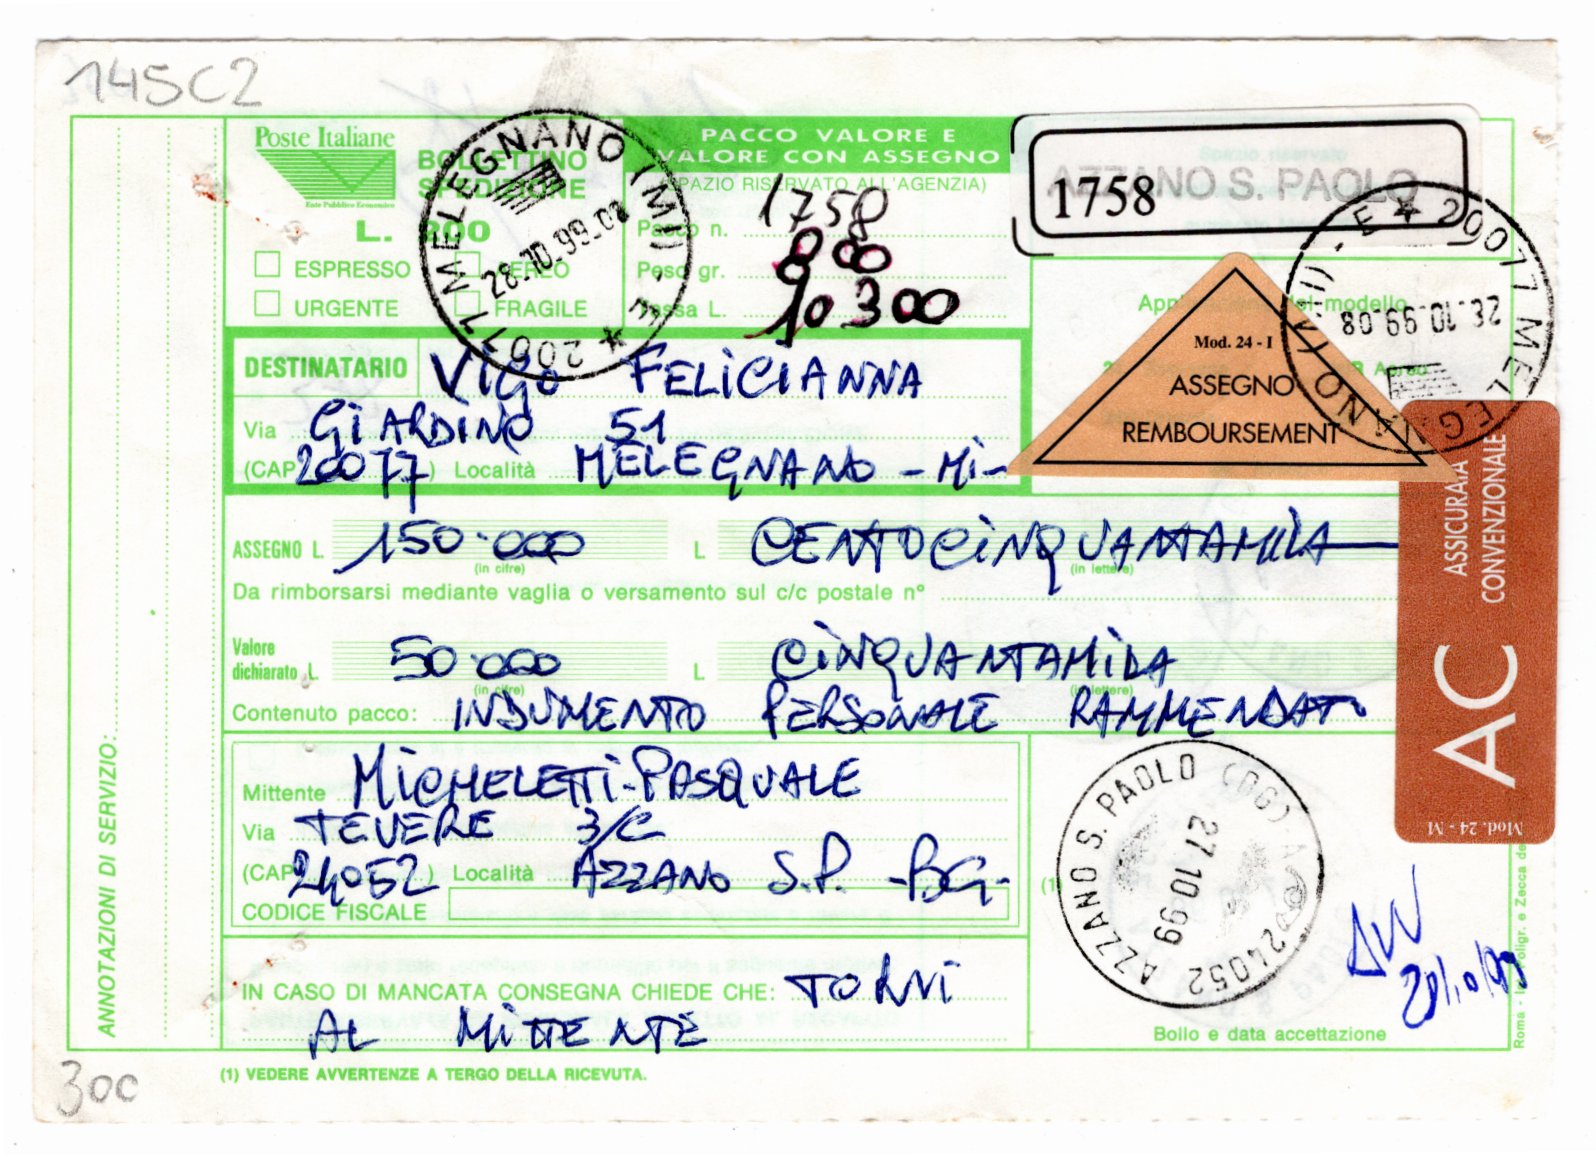 145C2
Poste Italiane
Ente Pubblico Economico
BOLLETTINO
SPEDIZIONE
L. 200
ESPRESSO
AEREO
URGENTE
FRAGILE
PACCO VALORE E
VALORE CON ASSEGNO
(SPAZIO RISERVATO ALL'AGENZIA)
Pacco n. 1758
Peso gr. 800
Tassa L. 10300
20077 MELEGNANO (MI) - E
28.10.99-08
AZZANO S. PAOLO
1758
20077 MELEGNANO (MI) - E
28.10.99.08
Mod. 24 - I
ASSEGNO
REMBOURSEMENT
DESTINATARIO VIGO FELICIANNA
Via GIARDINO 51
(CAP 20077) Località MELEGNANO - Mi -
ASSEGNO L. 150.000 L CENTOCINQUANTAMILA
(in cifre) (in lettere)
Da rimborsarsi mediante vaglia o versamento sul c/c postale n°
Valore
dichiarato L 50.000 L CINQUANTAMILA
(in cifre) (in lettere)
Contenuto pacco: INDUMENTO PERSONALE RAMMENDATO
ASSICURATA
CONVENZIONALE
AC
Mod. 24 - M
Mittente MICHELETTI - PASQUALE
Via TEVERE 3/C
(CAP 24052) Località AZZANO S.P. -BG-
CODICE FISCALE
(1)
24052 AZZANO S. PAOLO (BG)
27.10.99
Bollo e data accettazione
IN CASO DI MANCATA CONSEGNA CHIEDE CHE: TORNI
AL MITTENTE
ANNOTAZIONI DI SERVIZIO:
(1) VEDERE AVVERTENZE A TERGO DELLA RICEVUTA.
300